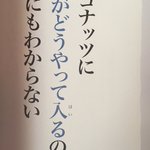 コナッツに
がどうやって入るの
にもわからない
はい